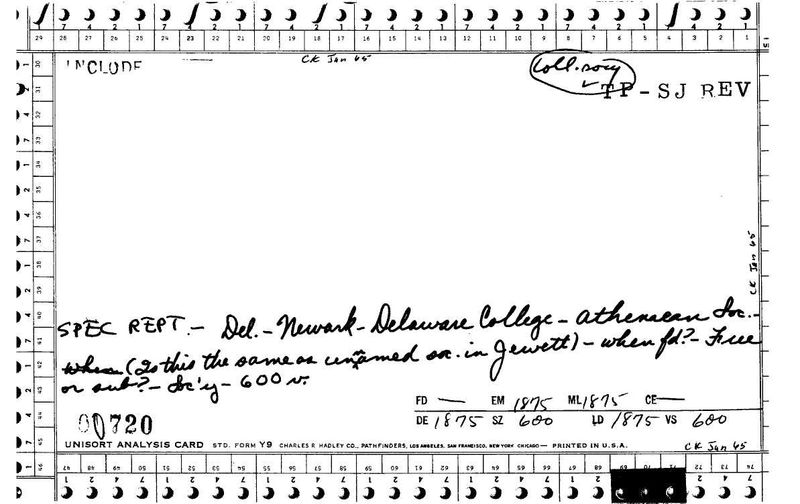 29 28 27 26 25 24 23 22 21 20 19 18 17 16 15 14 13 12 11 10 9 8 7 6 5 4 3 2 1
INCLUDE
CK Jan 65
Coll. socy
TP-SJ REV
CK Jan 65
SPEC REPT. - Del. - Newark - Delaware College - Athenaean Soc. -
when (Is this the same as unnamed soc. in Jewett) - when fd? - Free
or sub? - Soc'y - 600 v.
FD — EM 1875 ML 1875 CE —
DE 1875 SZ 600 LD 1875 VS 600
00720
UNISORT ANALYSIS CARD STD. FORM Y9 CHARLES R HADLEY CO., PATHFINDERS, LOS ANGELES, SAN FRANCISCO, NEW YORK CHICAGO — PRINTED IN U.S.A.
CK Jan 65